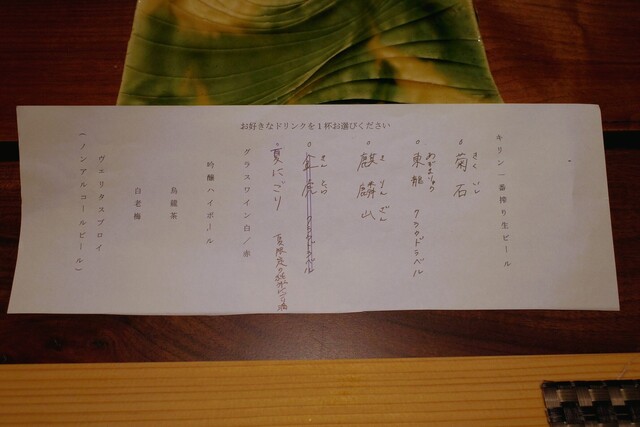 お好きなドリンクを1杯お選びください
キリン一番搾り生ビール
菊石 きくいし
東龍 あずまりゅう クラウドラベル
麒麟山 きりんざん
夏にごり 夏限定の
グラスワイン白/赤
吟醸ハイボール
烏龍茶
白老梅
ヴェリタスブロイ
(ノンアルコールビール)